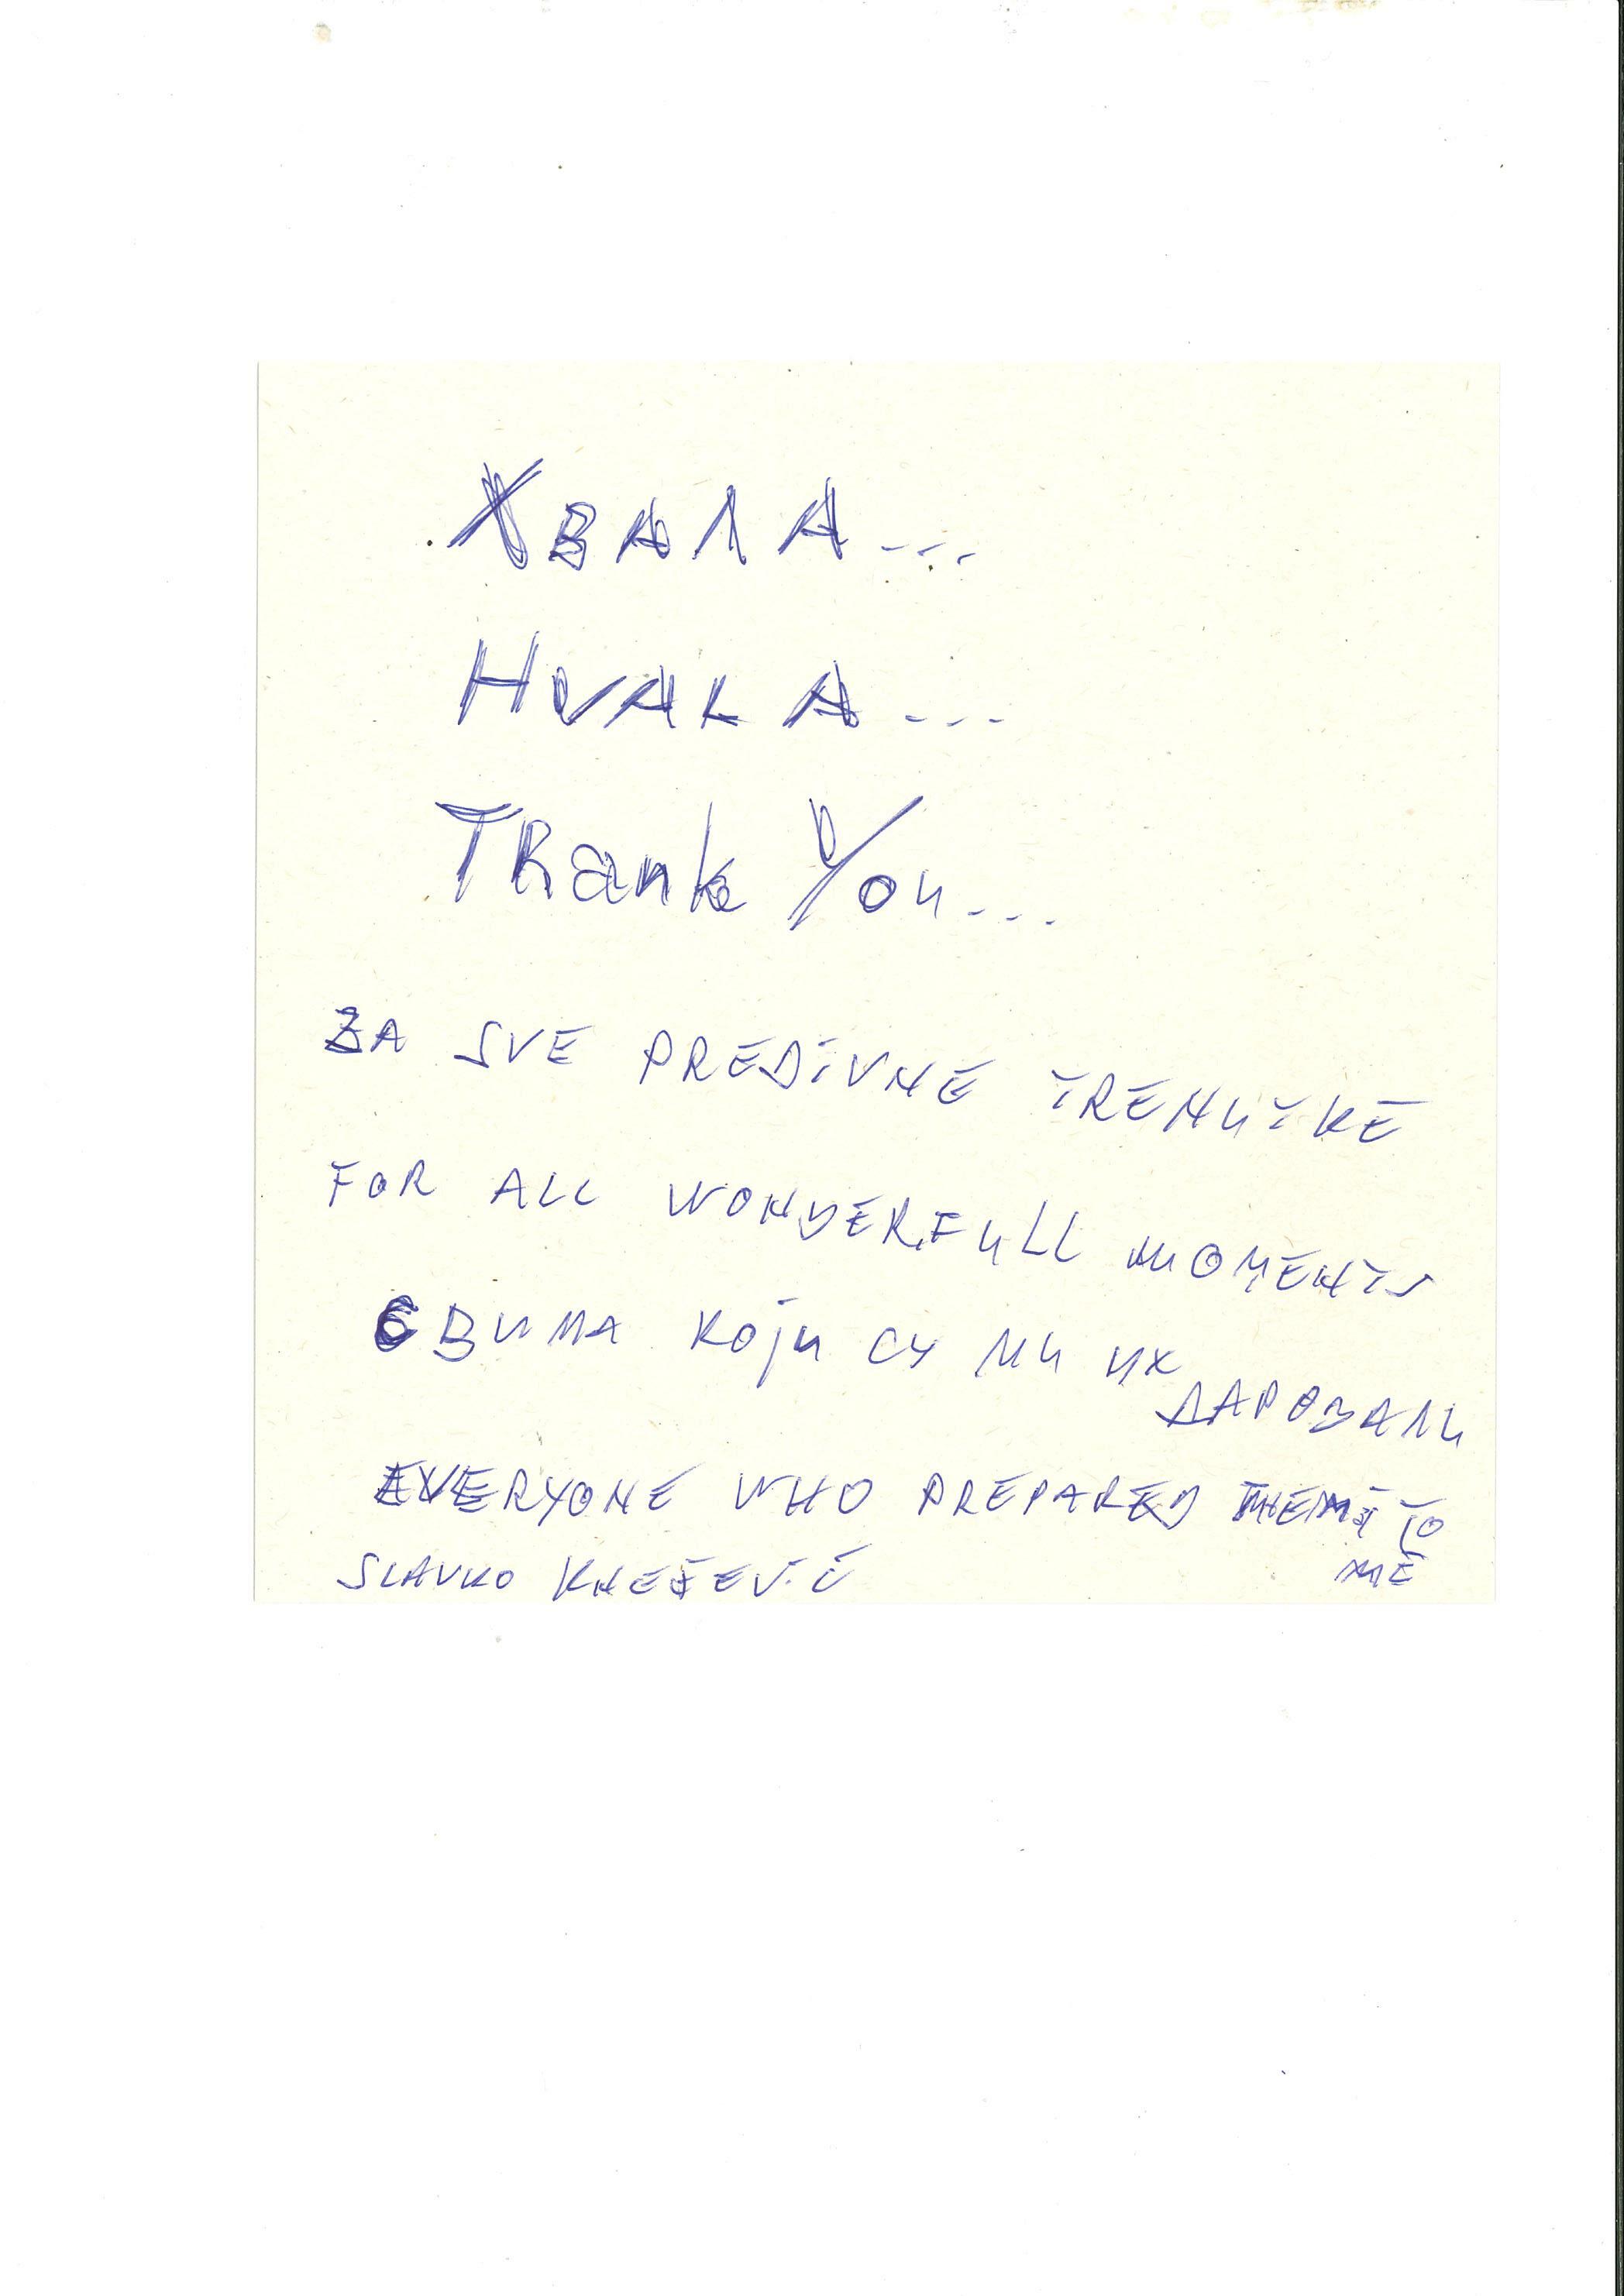 Хвала...
HVALA...
Thank You...
ZA SVE PREDIVNE TRENUTKE
FOR ALL WONDERFULL MOMENTS
СВИМА који су ми их
ДАРОВАЛИ
EVERYONE WHO PREPARED THEM TO
ME
SLAVKO KNEŽEVIĆ